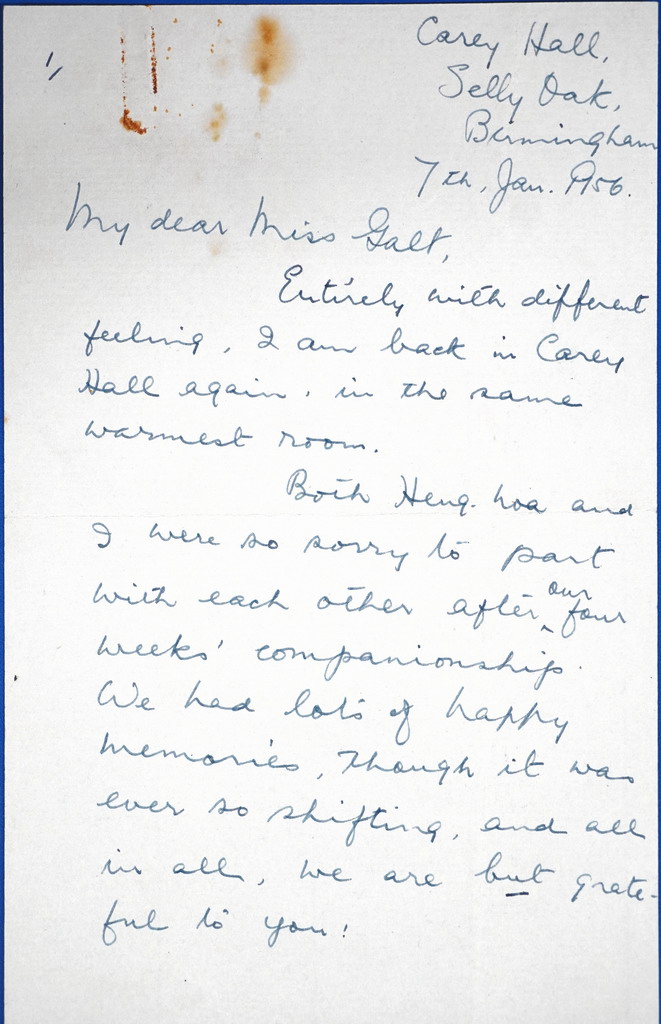 1,
Carey Hall,
Selly Oak,
Birmingham
7th. Jan. 1956.
My dear Miss Galt,
Entirely with different
feeling, I am back in Carey
Hall again, in the same
warmest room.
Both Heng-hoa and
I were so sorry to part
with each other after our four
weeks' companionship.
We had lots of happy
memories, though it was
ever so shifting, and all
in all, we are but grate-
ful to you!